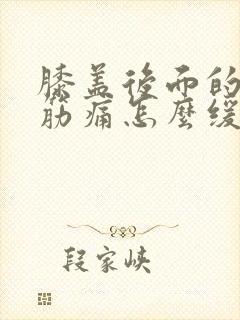 膝盖後面的
筋痛怎麼緩
段家峡